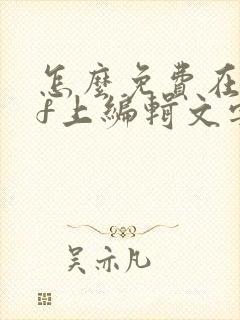 怎麼免費在
f上編輯文字
吴亦凡